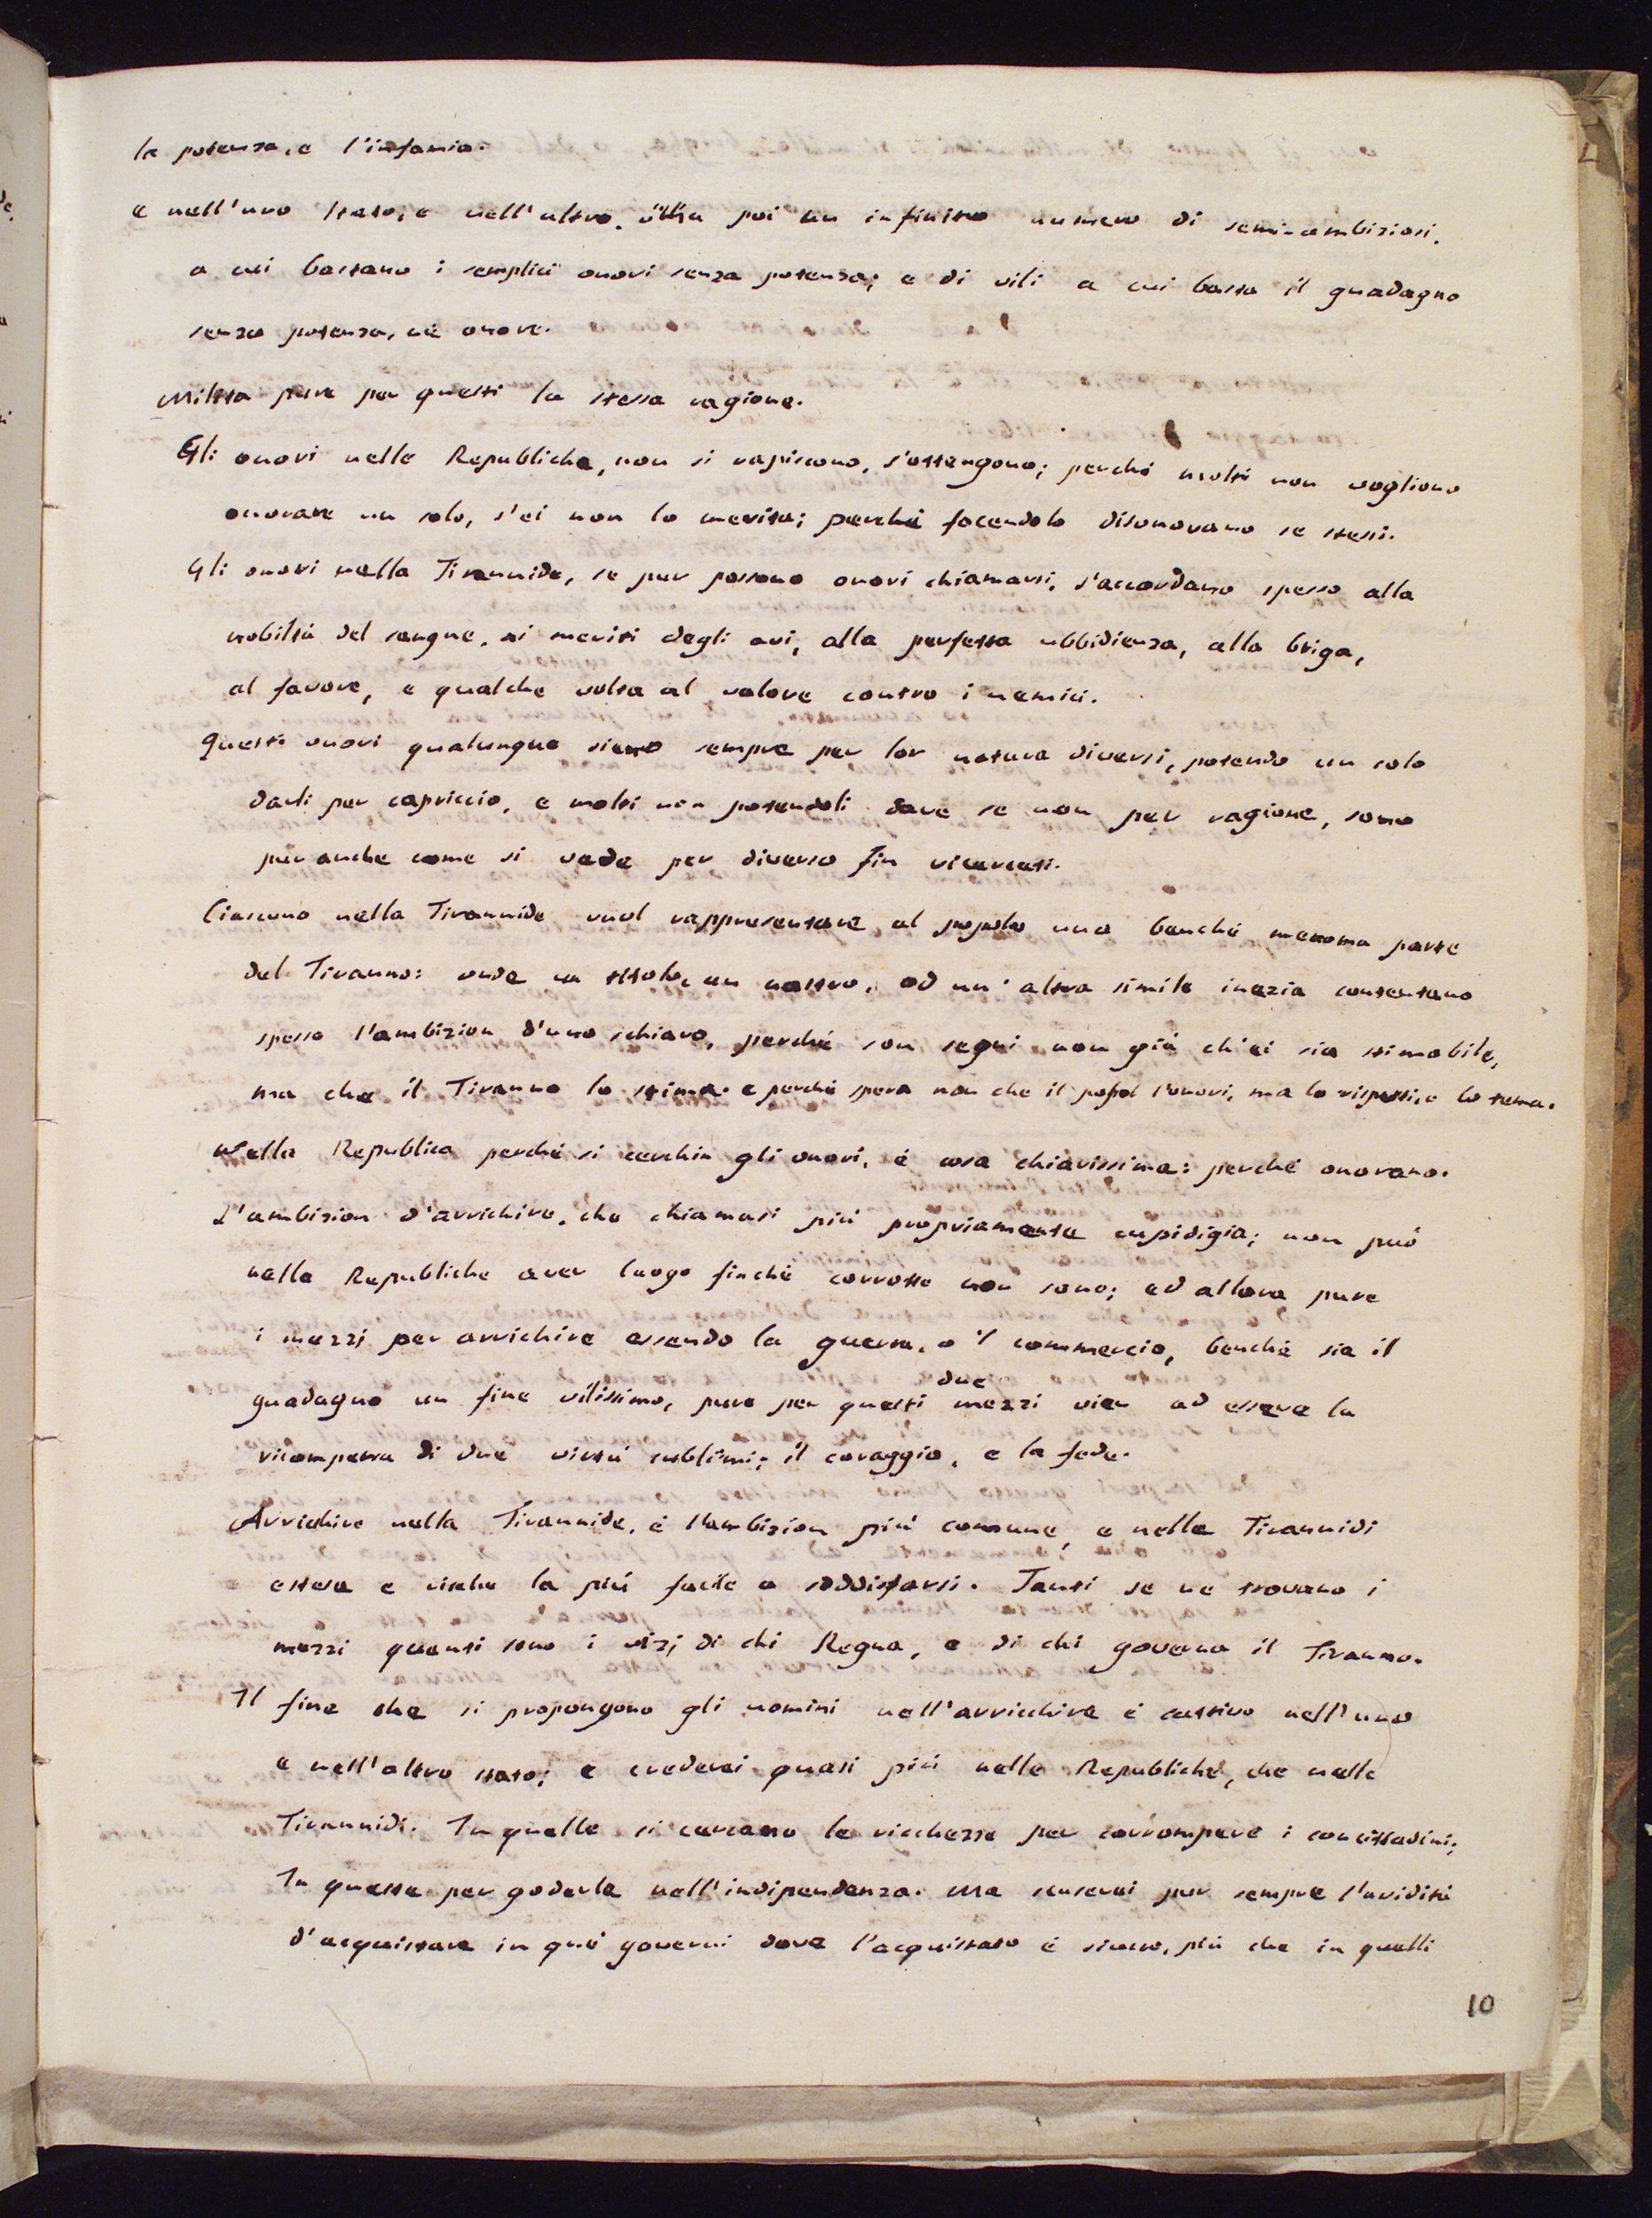 la potenza, e l'infamia.
e nell'uno stato, e nell'altro. v'ha poi un infinito numero di semi-ambiziosi,
a cui bastano i semplici onori senza potenza; e di vili a cui basta il guadagno
senza potenza, né onore.
Milita pure per questi la stessa ragione.
Gli onori nelle Republiche, non si rapiscono, s'ottengono; perché molti non vogliono
onorare un solo, s'ei non lo merita; perché facendolo disonorano se stessi.
Gli onori nella Tirannide, se pur possono onori chiamarsi, s'accordano spesso alla
nobiltà del sangue, ai meriti degli avi, alla perfetta ubbidienza, alla briga,
al favore, e qualche volta al valore contro i nemici.
Questi onori qualunque sieno sempre per lor natura diversi, potendo un solo
darli per capriccio, e molti non potendoli dare se non per ragione, sono
pur anche come si vede per diverso fin ricercati.
Ciascuno nella Tirannide vuol rappresentare al popolo una benché menoma parte
del Tiranno: onde un titolo, un nastro, od un'altra simile inezia contentano
spesso l'ambizion d'uno schiavo, perché son segni non già ch'ei sia stimabile,
ma che il Tiranno lo stima. e perché spera non che il popol l'onori, ma lo rispetti, e lo tema.
Nella Republica perché si cerchin gli onori, è cosa chiarissima: perché onorano.
L'ambizion d'arrichire, che chiamasi più propriamente cupidigia; non può
nelle Republiche aver luogo finché corrotte non sono; ed allora pure
i mezzi per arrichire essendo la guerra, o 'l commercio, benché sia il
guadagno un fine vilissimo, pure per questi due mezzi vien ad essere la
ricompensa di due virtù sublimi; il coraggio, e la fede.
Arrichire nella Tirannide, è l'ambizion più comune, e nelle Tirannidi
estese e ricche la più facile a soddisfarsi. Tanti se ne trovano i
mezzi quanti sono i vizj di chi Regna, e di chi governa il Tiranno.
Il fine che si propongono gli uomini nell'arricchire è cattivo nell'uno
e nell'altro stato; e crederei quasi più nelle Republiche, che nelle
Tirannidi. In quelle si cercano le ricchezze per corrompere i concittadini;
In queste per goderle nell'indipendenza. Ma scuserei pur sempre l'avidità
d'acquistare in que' governi dove l'acquistato è sicuro, più che in quelli
10